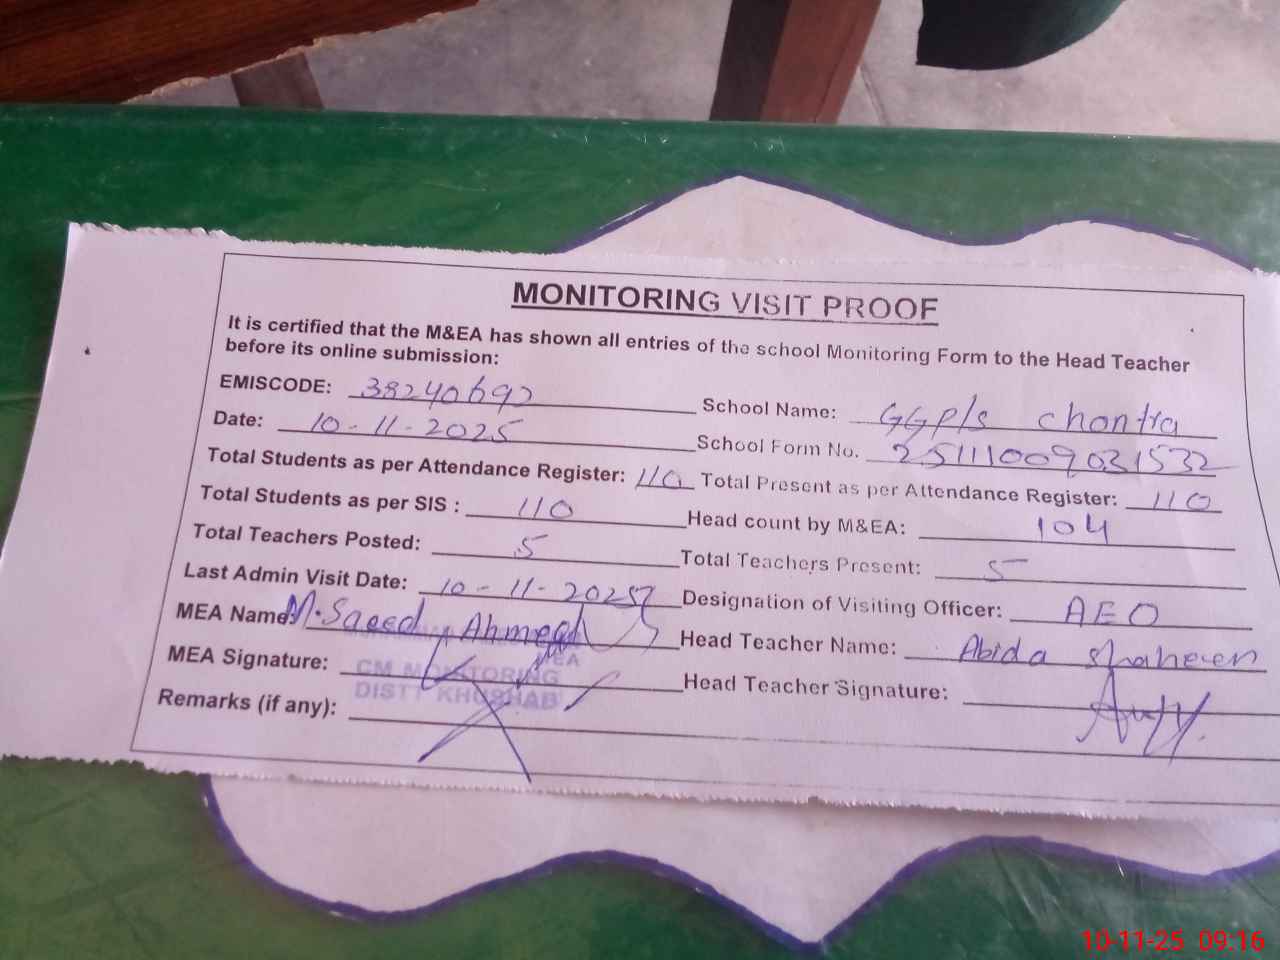 MONITORING VISIT PROOF
It is certified that the M&EA has shown all entries of the school Monitoring Form to the Head Teacher
before its online submission:
EMISCODE: 38240692 School Name: GGP/s Chontra
Date: 10-11-2025 School Form No. 25111009031532
Total Students as per Attendance Register: 110 Total Present as per Attendance Register: 110
Total Students as per SIS : 110 Head count by M&EA: 104
Total Teachers Posted: 5 Total Teachers Present: 5
Last Admin Visit Date: 10-11-2025 Designation of Visiting Officer: AEO
MEA Name: M.Saeed Ahmed Head Teacher Name: Abida Shaheen
MEA Signature: Head Teacher Signature:
MEA
CM MONITORING
DISTT KHUSHAB
Remarks (if any):
10-11-25 09:16